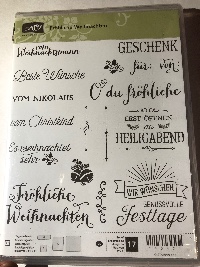 Fröhliche Weihnachten
vom
Weihnachtsmann
GESCHENK
für von
Beste Wünsche
O du fröhliche
VOM NIKOLAUS
ERST ÖFFNEN
AM
vom Christkind
HEILIGABEND
Es weihnachtet
sehr
WIR WÜNSCHEN
Fröhliche
Weihnachten
GENUSSVOLLE
Festtage
17